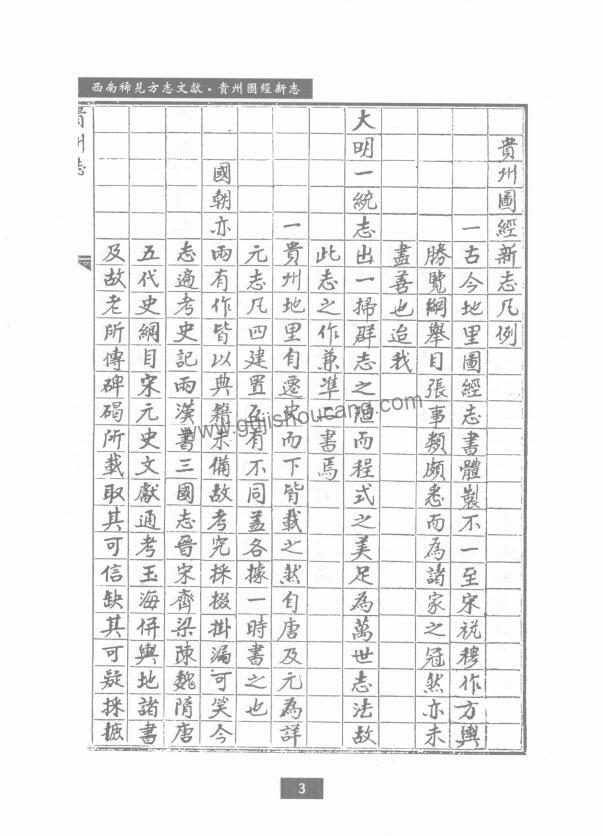 西南稀見方志文獻·貴州圖經新志
貴州圖經新志凡例
一古今地里圖經志書體製不一至宋祝穆作方輿
勝覽綱舉目張事類頗悉而為諸家之冠然亦未
盡善也迨我
大明一統志出一掃群志之陋而程式之美足為萬世志法故
此志之作兼準二書焉
一貴州地里自遷史而下皆載之然自唐及元為詳
元志凡四建置互有不同盖各據一時書之也
國朝亦兩有作皆以典籍未備故考究採掇掛漏可笑今
志遍考史記兩漢書三國志晉宋齊梁陳魏隋唐
五代史綱目宋元史文獻通考玉海併輿地諸書
及故老所傳碑碣所載取其可信缺其可疑採摭
貴州志
www.gujishoucang.com
3